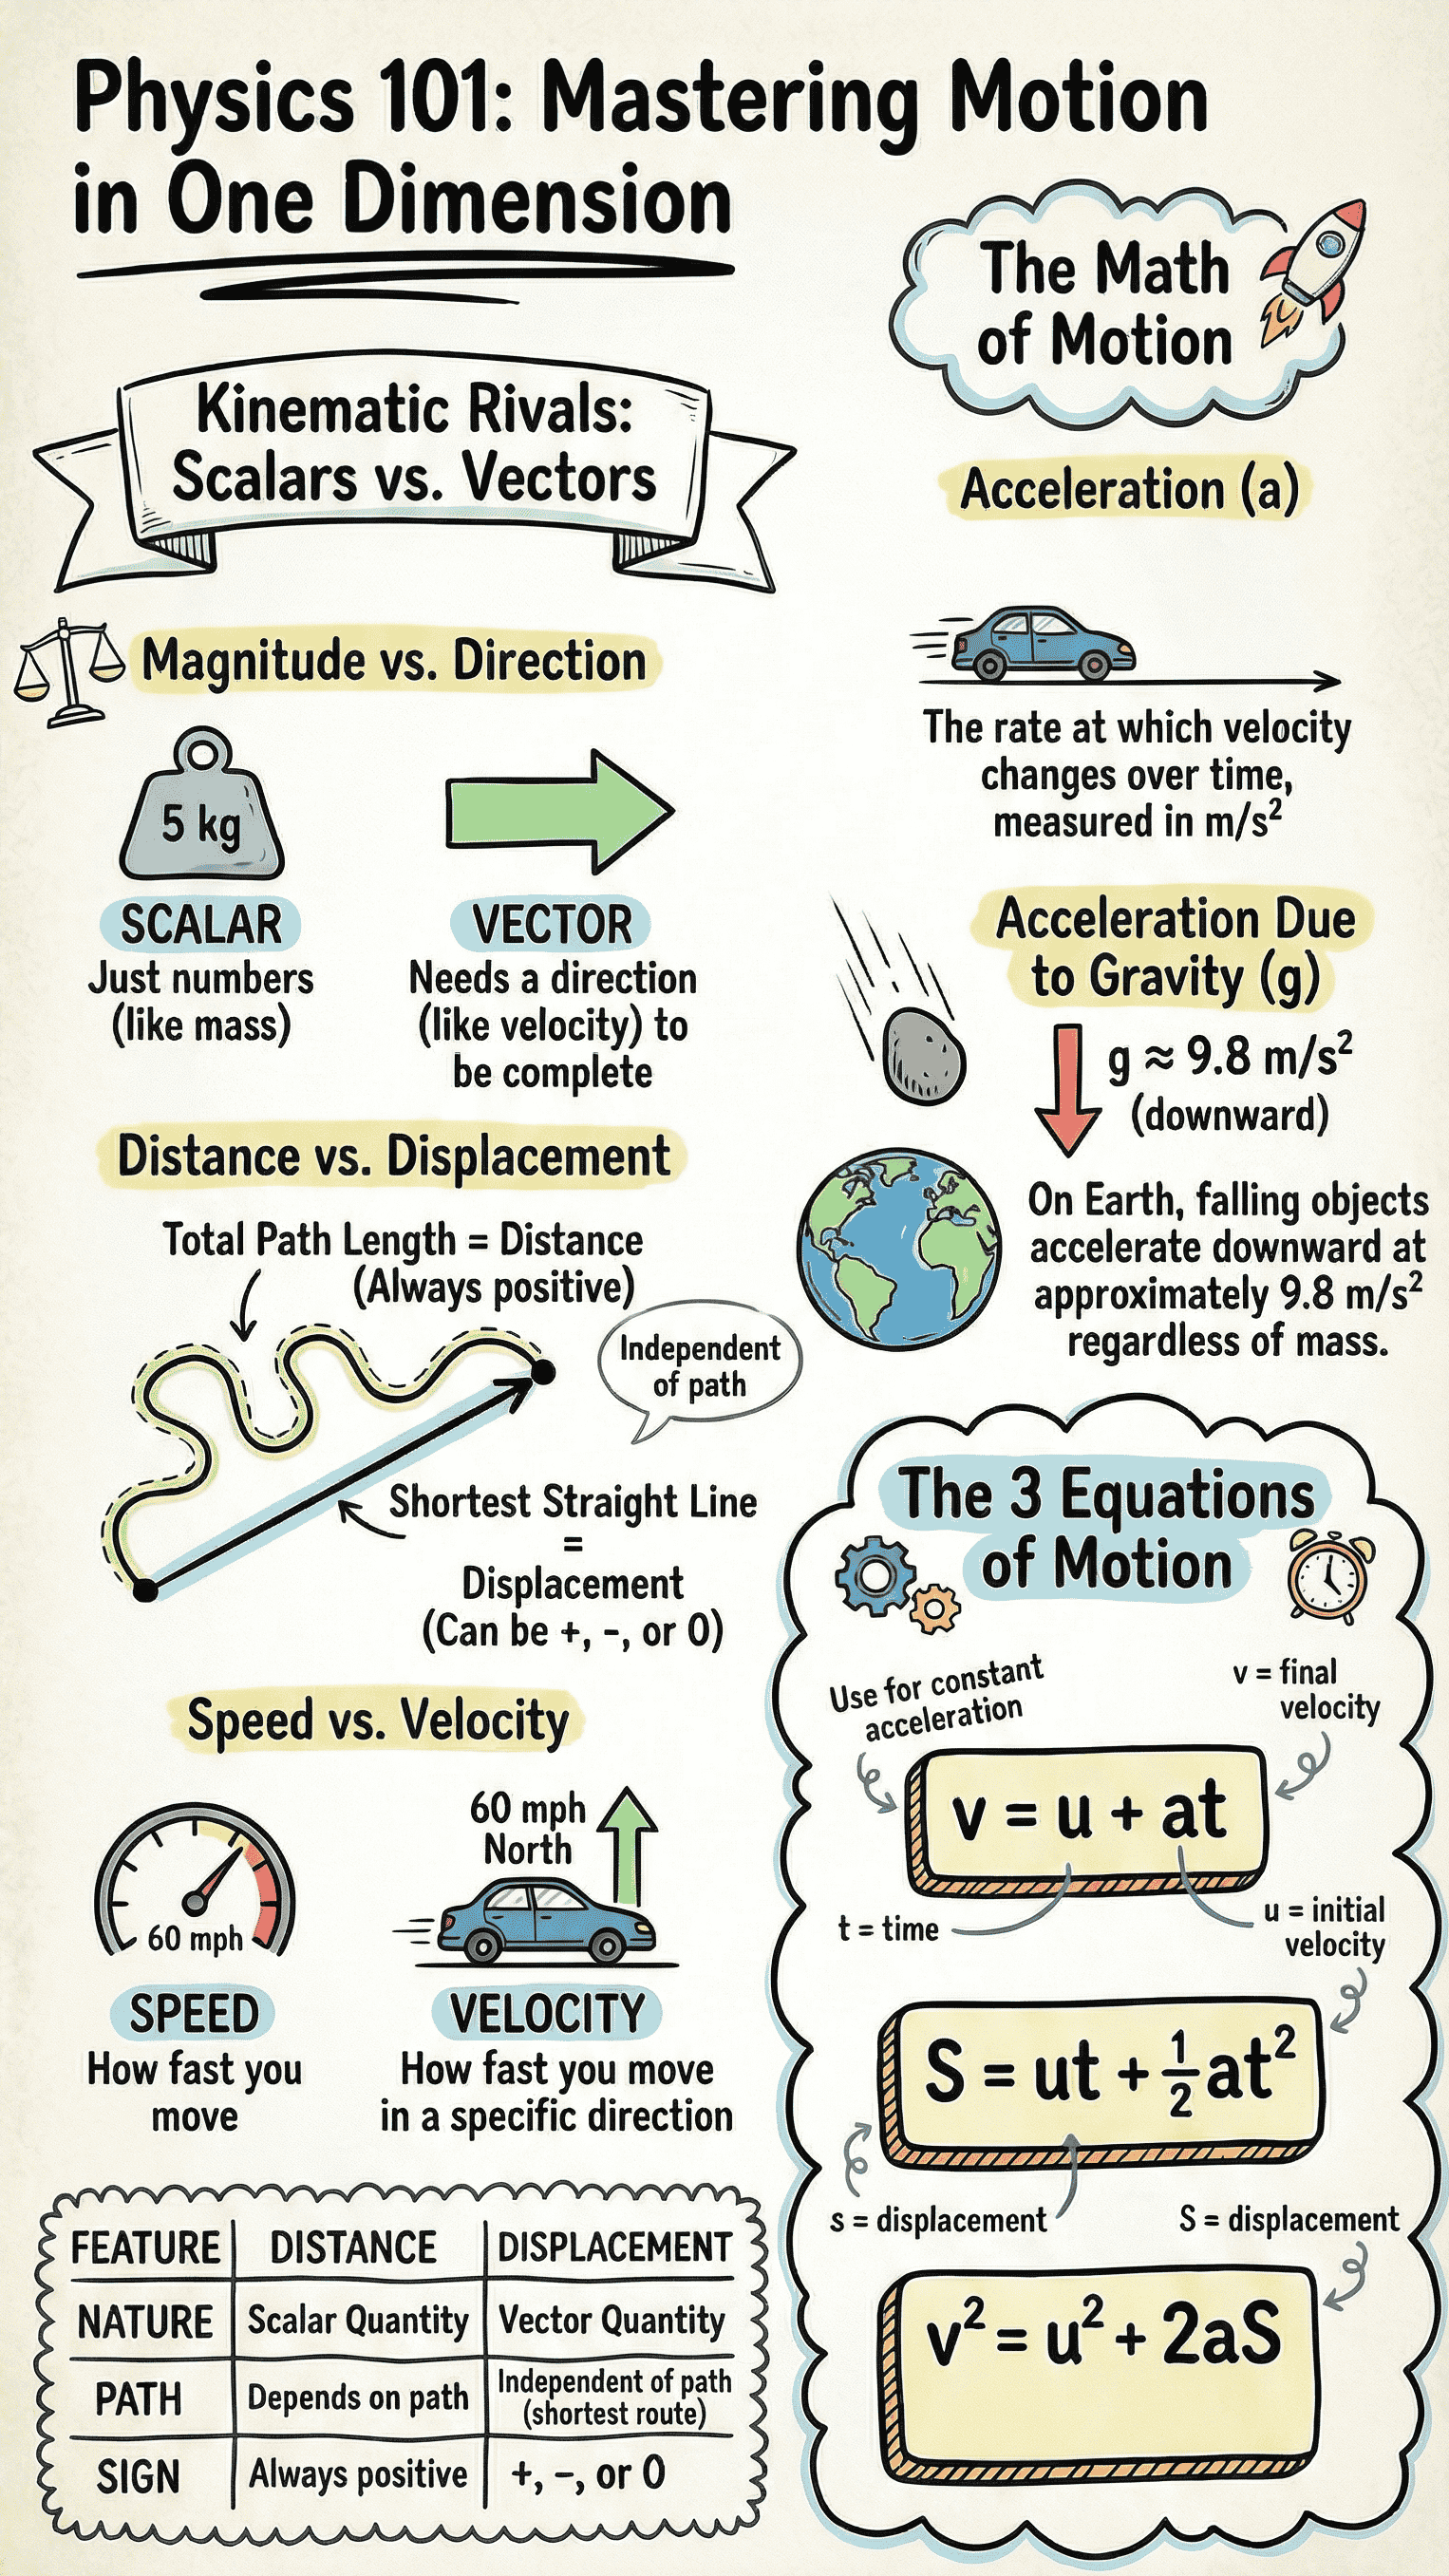 Physics 101: Mastering Motion
in One Dimension
Kinematic Rivals:
Scalars vs. Vectors
Magnitude vs. Direction
5 kg
SCALAR
Just numbers
(like mass)
VECTOR
Needs a direction
(like velocity) to
be complete
Distance vs. Displacement
Total Path Length = Distance
(Always positive)
Independent
of path
Shortest Straight Line
=
Displacement
(Can be +, -, or 0)
Speed vs. Velocity
60 mph
SPEED
How fast you
move
60 mph
North
VELOCITY
How fast you move
in a specific direction
FEATURE DISTANCE DISPLACEMENT
NATURE Scalar Quantity Vector Quantity
PATH Depends on path Independent of path
(shortest route)
SIGN Always positive +, -, or 0
The Math
of Motion
Acceleration (a)
The rate at which velocity
changes over time,
measured in m/s²
Acceleration Due
to Gravity (g)
g ≈ 9.8 m/s²
(downward)
On Earth, falling objects
accelerate downward at
approximately 9.8 m/s²
regardless of mass.
The 3 Equations
of Motion
Use for constant
acceleration
v = final
velocity
v = u + at
t = time
u = initial
velocity
S = ut + ½at²
s = displacement
S = displacement
v² = u² + 2aS